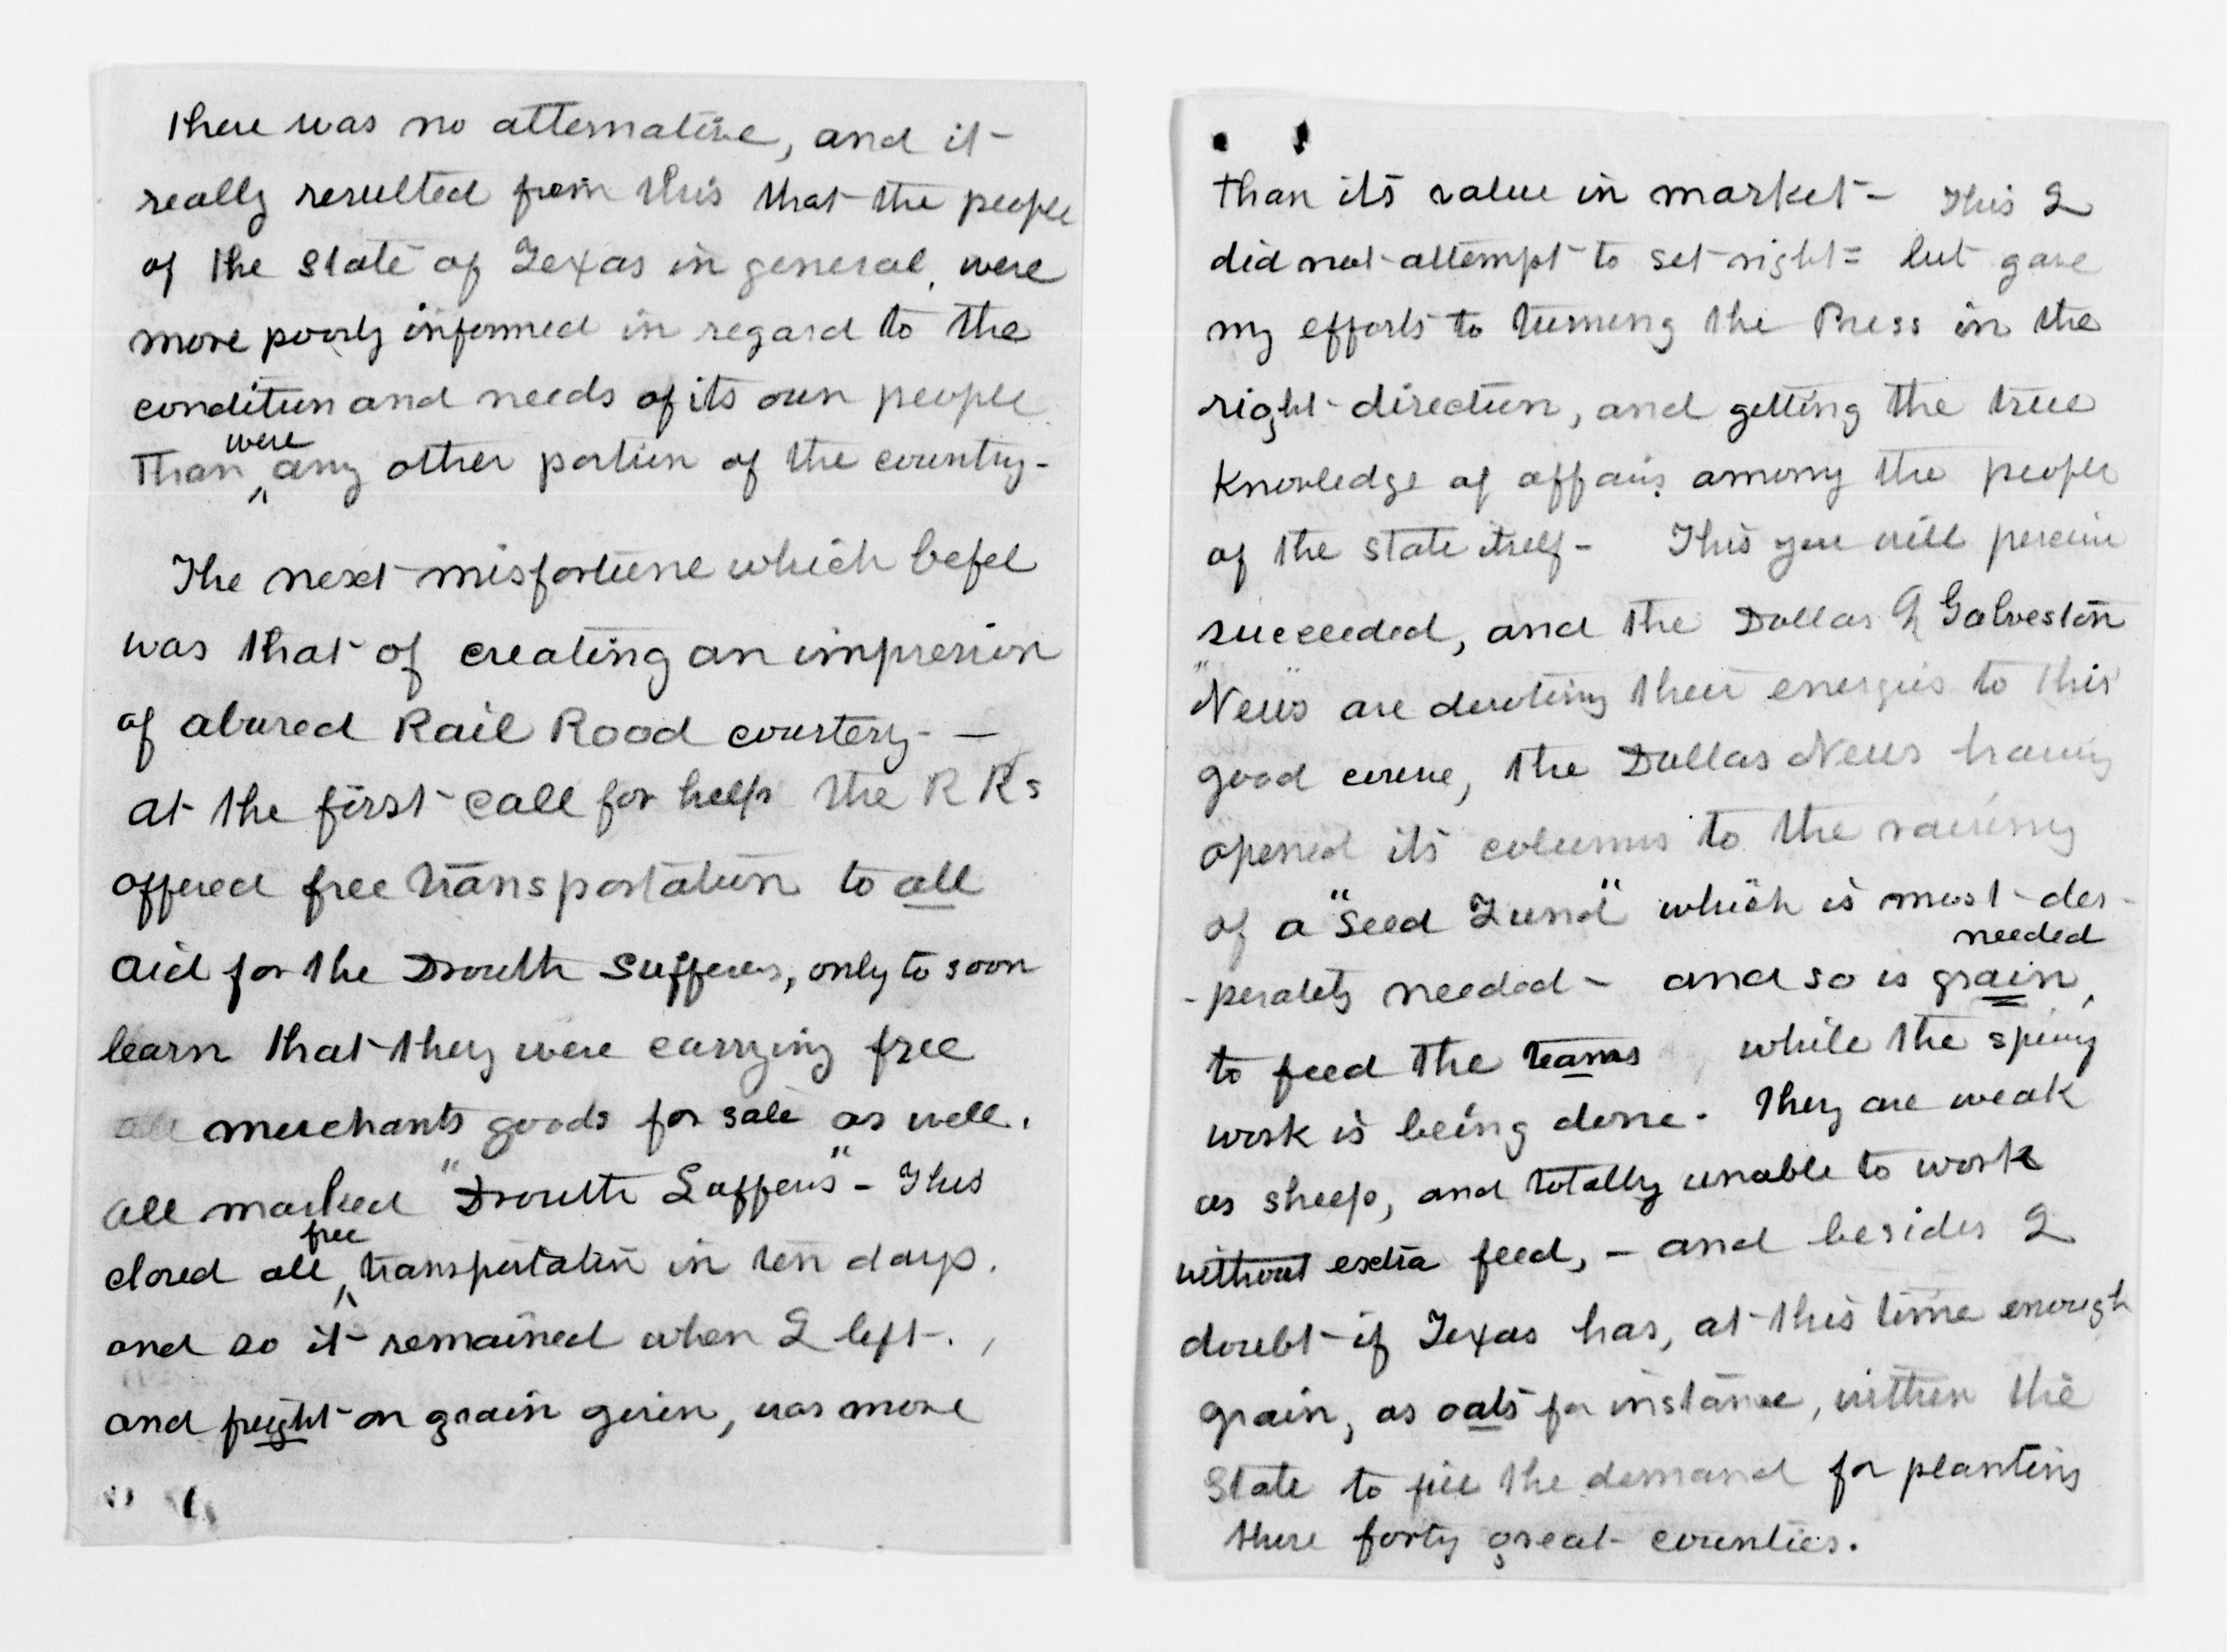 There was no alternative, and it
really resulted from this that the people
of the state of Texas in general, were
more poorly informed in regard to the
condition and needs of its own people
were
Than any other portion of the country -
The next misfortune which befel
was that of creating an impression
of abused Rail Road courtesy - —
at the first call for help the R Rs
offered free transportation to all
aid for the Drouth Sufferers, only to soon
learn that they were carrying free
all merchants goods for sale as well.
all marked "Drouth Sufferers" - This
free
closed all transportation in ten days.
and so it remained when I left.
and freight on grain given, was more
than its value in market - This I
did not attempt to set right = but gave
my efforts to turning the Press in the
right direction, and getting the true
knowledge of affairs among the people
of the state itself - This you will perceive
succeeded, and the Dallas & Galveston
"News" are devoting their energies to this
good course, the Dallas News having
opened its columns to the raising
of a "Seed Fund" which is most des-
needed
-perately needed - and so is grain,
to feed the teams while the spring
work is being done. They are weak
as sheep, and totally unable to work
without extra feed, - and besides I
doubt if Texas has, at this time enough
grain, as oats for instance, within the
State to fill the demand for planting
these forty great counties.